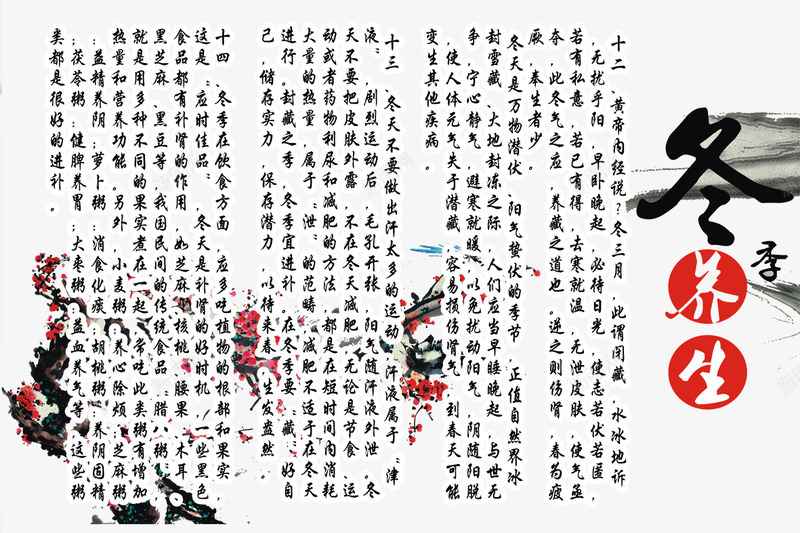 冬
季
养
生
十二、黄帝内经说：冬三月，此谓闭藏，水冰地诉
，无扰乎阳，早卧晚起，必待日光，使志若伏若匿，
若有私意，若已有得，去寒就温，无泄皮肤，使气亟
夺，此冬气之应，养藏之道也。逆之则伤肾，春为痿
厥，奉生者少。
冬天是万物潜伏、阳气蛰伏的季节，正值自然界冰
封雪藏、大地封冻之际，人们应当早睡晚起，与世无
争，宁心静气，避寒就暖，以免扰动阳气，阴随阳脱
，使人体元气失于潜藏，容易损伤肾气，到春天可能
变生其他疾病。
十三、冬天不要做出汗太多的运动，汗液属于“津
液”，剧烈运动后，毛孔开张，阳气随汗液外泄。冬
天不要把皮肤外露，不在冬天减肥，无论是节食、运
动或者药物利尿和减肥的方法，都是在短时间内消耗
大量的热量，属于“泄”的范畴，减肥不适于在冬天
进行。封藏之季，冬季宜进补。在冬季要“藏”好自
己，储存实力，保存潜力，以待来春生发盎然。
十四、冬季在饮食方面，应多吃植物的根部和果实，
这是“应时佳品”，冬天是补肾的好时机，一些黑色
食品都有补肾的作用，如芝麻、核桃、腰果、木耳、
黑芝麻、黑豆等，我国民间的传统食品“腊八粥”，
就是用多种不同的果实煮在一起，常吃此类粥有增加
热量和营养功能。另外，小麦粥：养心除烦；芝麻粥
：益精养阴；萝卜粥：消食化痰；胡桃粥：养阴固精
；茯苓粥：健脾养胃；大枣粥：益血养气等，这些粥
类都是很好的进补。